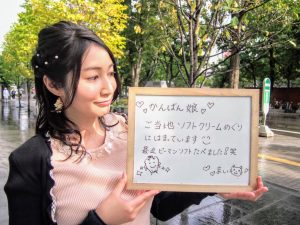 かんばん娘
ご当地ソフトクリームめぐり
にはまっています
最近ピーマンソフトたべました!!笑
まい